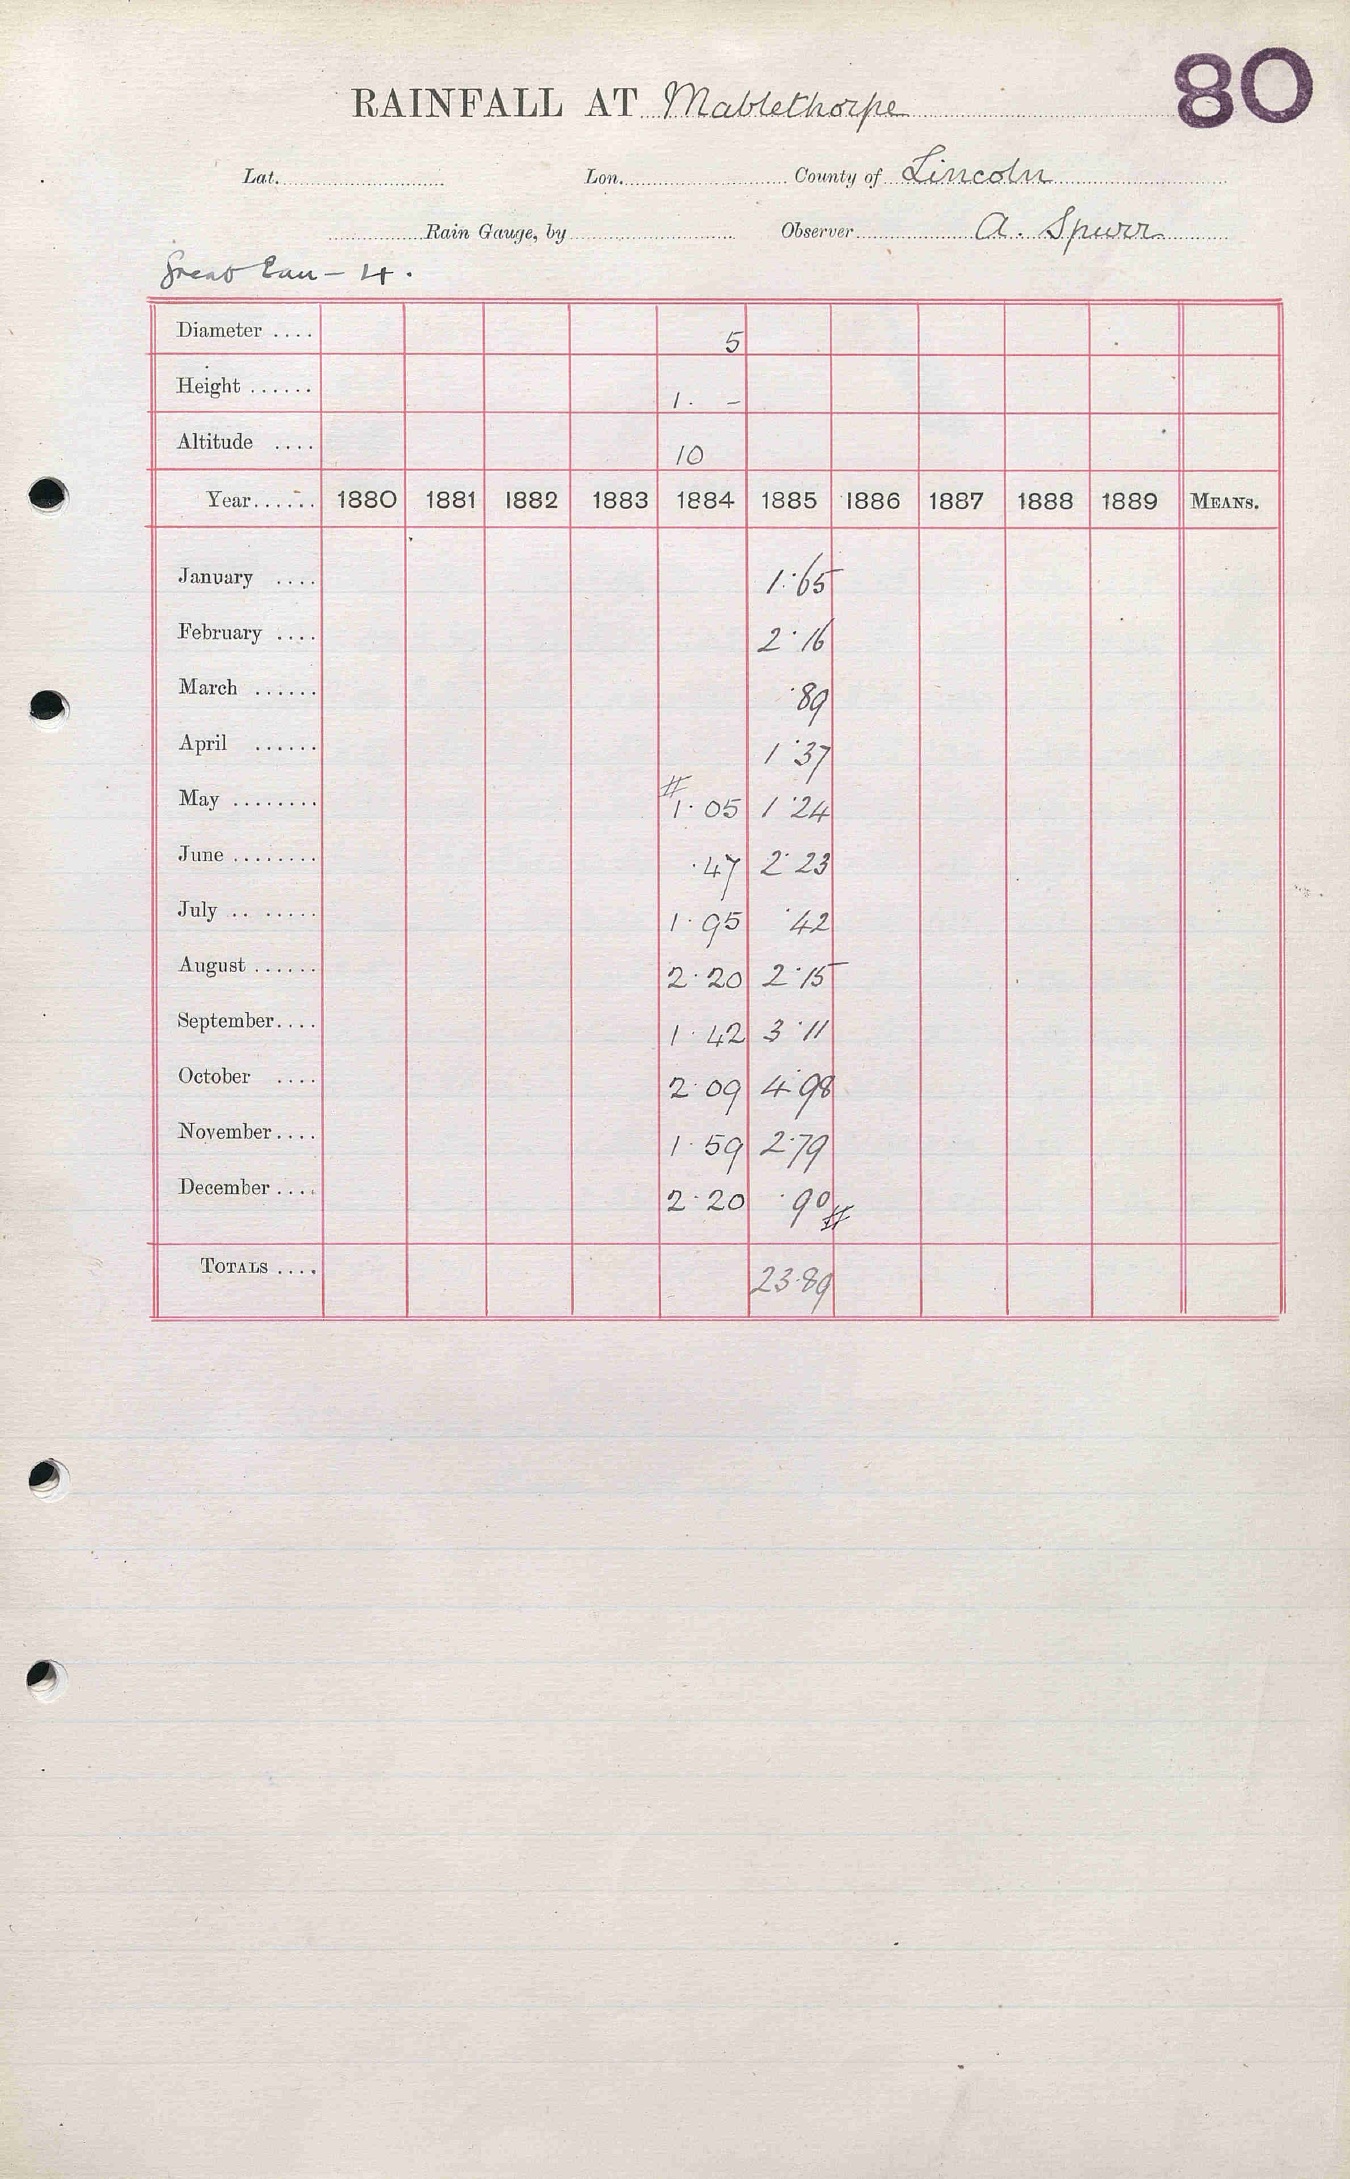 80
RAINFALL AT Mablethorpe
Lat. Lon. County of Lincoln
Rain Gauge, by Observer A. Spurr
Great Eau - 4.
Diameter .... 5
Height ...... 1. -
Altitude .... 10
Year...... 1880 1881 1882 1883 1884 1885 1886 1887 1888 1889 MEANS.
January .... 1.65
February .... 2.16
March ...... .89
April ...... 1.37
May ........ # 1.05 1.24
June ........ .47 2.23
July .. ..... 1.95 .42
August ...... 2.20 2.15
September.... 1.42 3.11
October .... 2.09 4.98
November.... 1.59 2.79
December.... 2.20 .90 #
TOTALS .... 23.89